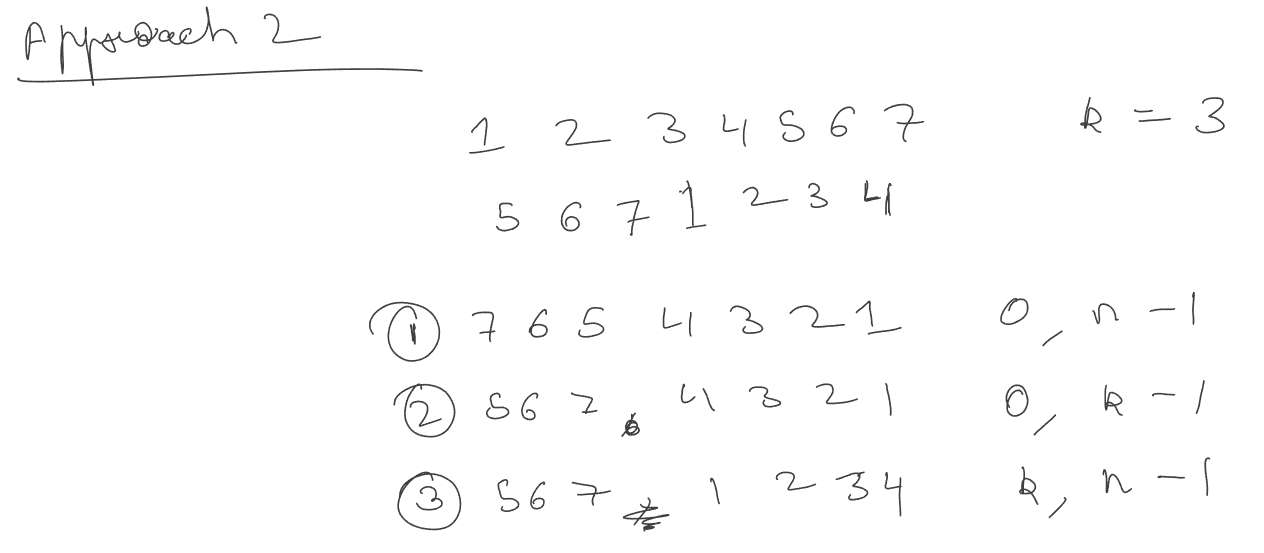 Approach 2
1 2 3 4 5 6 7 k = 3
5 6 7 1 2 3 4
1 7 6 5 4 3 2 1 0, n - 1
2 5 6 7 4 3 2 1 0, k - 1
3 5 6 7 1 2 3 4 k, n - 1